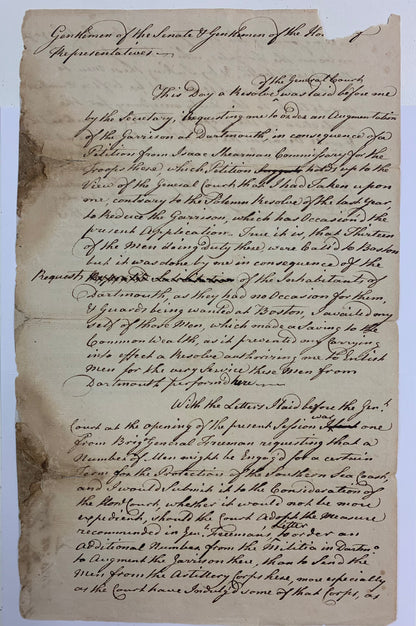 Gentlemen of the Senate & Gentlemen of the Hou of
Representatives —
of the General Court
This Day a Resolve ^ was laid before me
by the Secretary, requesting me to order an Augmentation
of the Garrison at Dartmouth in consequence of a
Petition from Isaac Shearman Commissary for the
Troops there which Petition holds up to the
View of the General Court that I had Taken upon
me, contrary to the Solemn Resolve of the last Year,
to Reduce the Garrison, which has Occasion'd the
present Application. True it is, that Thirteen
of the Men doing Duty there were Call'd to Boston
but it was done by me in consequence of the
Request of the Inhabitants of
Dartmouth, as they had no Occasion for them,
& Guards being wanted at Boston, I availed my
self of those Men, which made a Saving to the
Common Wealth, as it prevented my Carrying
into effect a Resolve authorizing me to Enlist
Men for the very Service these Men from
Dartmouth perform'd here —
With the Letters I laid before the Genl.
Court at the opening of the present Session was one
from Brigr. General Freeman requesting that a
Number of Men might be Engag'd for a certain
Term for the Protection of the Southern Sea Coast,
and I would Submit it to the Consideration of
the Honl. Court, whether it would not be more
expedient, should the Court Adopt the Measure
recommended in Gen. Freemans ^ Letter to order an
Additional Number from the Militia in Dartmo.
to Augment the Garrison there, than to Send the
Men from the Artillery Corps here, more especially
as the Court have Indulg'd some of that Corps, as